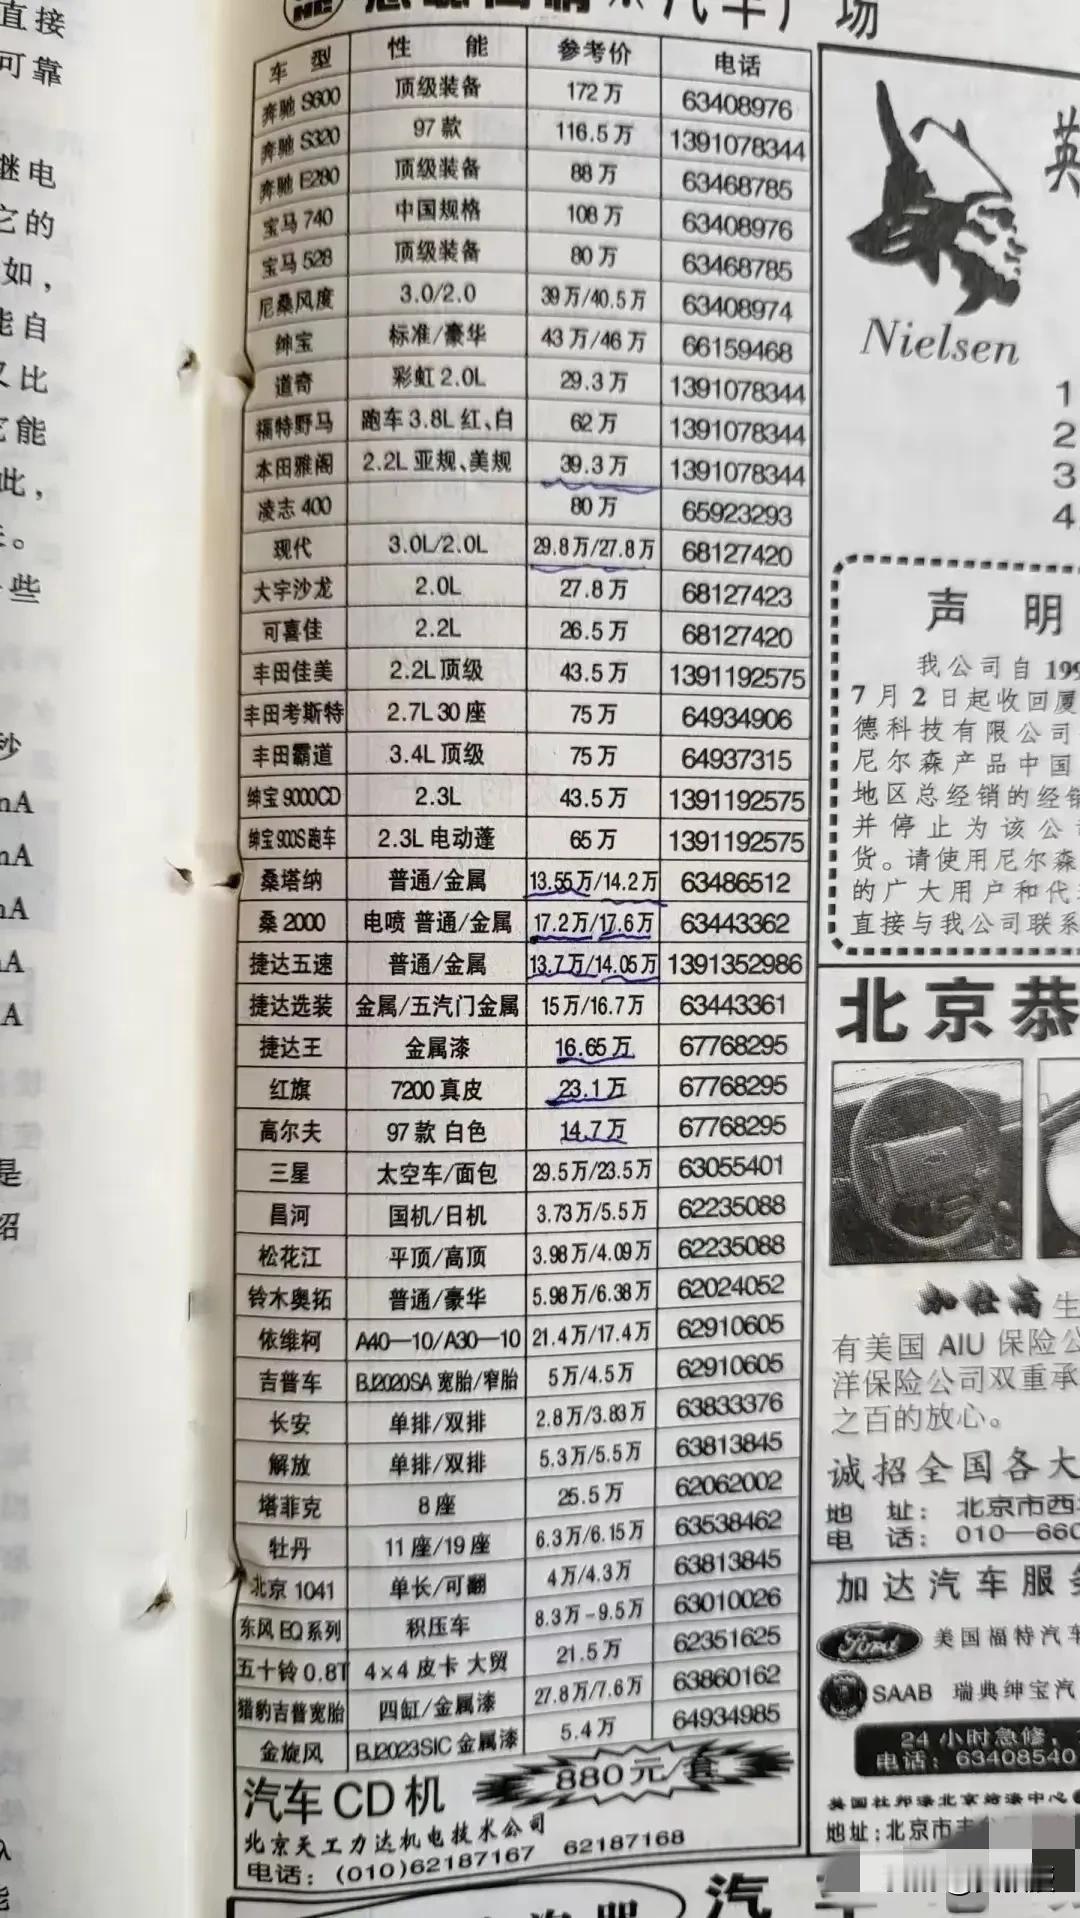 直接
可靠
继电
它的
如，
能自
又比
它能
此，
。
些
秒
mA
mA
mA
A
A
是
绍
汽车广场
车 型 性 能 参考价 电话
奔驰 S600 顶级装备 172万 63408976
奔驰 S320 97款 116.5万 1391078344
奔驰 E280 顶级装备 88万 63468785
宝马 740 中国规格 108万 63408976
宝马 528 顶级装备 80万 63468785
尼桑风度 3.0/2.0 39万/40.5万 63408974
绅宝 标准/豪华 43万/46万 66159468
道奇 彩虹 2.0L 29.3万 1391078344
福特野马 跑车3.8L红、白 62万 1391078344
本田雅阁 2.2L亚规、美规 39.3万 1391078344
凌志 400 80万 65923293
现代 3.0L/2.0L 29.8万/27.8万 68127420
大宇沙龙 2.0L 27.8万 68127423
可喜佳 2.2L 26.5万 68127420
丰田佳美 2.2L顶级 43.5万 1391192575
丰田考斯特 2.7L30座 75万 64934906
丰田霸道 3.4L顶级 75万 64937315
绅宝9000CD 2.3L 43.5万 1391192575
绅宝900S跑车 2.3L电动蓬 65万 1391192575
桑塔纳 普通/金属 13.55万/14.2万 63486512
桑 2000 电喷 普通/金属 17.2万/17.6万 63443362
捷达五速 普通/金属 13.7万/14.05万 1391352986
捷达选装 金属/五汽门金属 15万/16.7万 63443361
捷达王 金属漆 16.65万 67768295
红旗 7200真皮 23.1万 67768295
高尔夫 97款 白色 14.7万 67768295
三星 太空车/面包 29.5万/23.5万 63055401
昌河 国机/日机 3.73万/5.5万 62235088
松花江 平顶/高顶 3.98万/4.09万 62235088
铃木奥拓 普通/豪华 5.98万/6.38万 62024052
依维柯 A40—10/A30—10 21.4万/17.4万 62910605
吉普车 BJ2020SA 宽胎/窄胎 5万/4.5万 62910605
长安 单排/双排 2.8万/3.83万 63833376
解放 单排/双排 5.3万/5.5万 63813845
塔菲克 8座 25.5万 62062002
牡丹 11座/19座 6.3万/6.15万 63538462
北京 1041 单长/可翻 4万/4.3万 63813845
东风EQ系列 积压车 8.3万-9.5万 63010026
五十铃0.8T 4×4皮卡 大贸 21.5万 62351625
猎豹吉普宽胎 四缸/金属漆 27.8万/7.6万 63860162
金旋风 BJ2023SIC金属漆 5.4万 64934985
汽车CD机 880元/套
北京天工力达机电技术公司
电话：(010)62187167 62187168
汽车
英
Nielsen
1
2
3
4
声 明
我公司自199
7月2日起收回厦
德科技有限公司
尼尔森产品中国
地区总经销的经销
并停止为该公司
货。请使用尼尔森
的广大用户和代
直接与我公司联系
北京恭
加仕高 生
有美国AIU保险公
洋保险公司双重承
之百的放心。
诚招全国各大
地 址：北京市西
电 话：010—660
加达汽车服务
Ford 美国福特汽车
SAAB 瑞典绅宝汽
24小时急修，
电话：63408540
地址：北京市丰